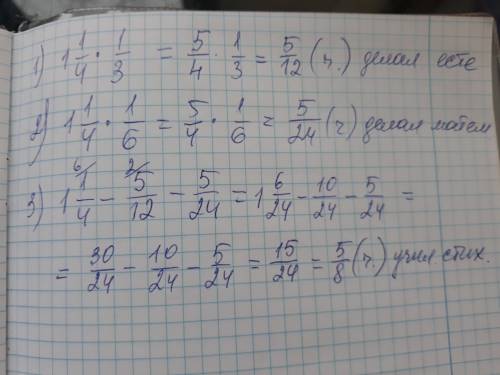 1) 1 1/4 · 1/3 = 5/4 · 1/3 = 5/12 (ч.) делал есте
2) 1 1/4 · 1/6 = 5/4 · 1/6 = 5/24 (ч) делал матем
3) 1 1/4 (6/) - 5/12 (2/) - 5/24 = 1 6/24 - 10/24 - 5/24 =
= 30/24 - 10/24 - 5/24 = 15/24 = 5/8 (ч.) учил стих.